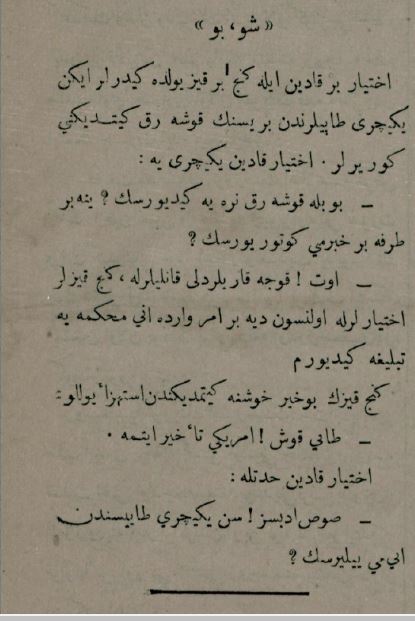 « شو ، بو »
اختيار بر قادين ايله كنج بر قيز يولده كيدرلر ايكن
يكيچرى طاپيلرندن بريسنك قوشه رق كيتــديكنى
كوريرلر . اختيار قادين يكيچرى يه :
ــ بويله قوشه رق نره يه كيديورسك ؟ ينه بر
طرفه بر خبرمي كوتور يورسك ؟
ــ اوت ! قوجه قاريلر دلى قانليلرله ، كنج قيزلر
اختيار لرله اولنسون ديه بر امر وارده اني محكمه يه
تبليغه كيديورم
كنج قيزك بوخبر خوشنه كيتمديكندن استهزاءً يوللو :
ــ طاني قوش ! امريكي تأخير ايتمه .
اختيار قادين حدتله :
ــ صوص ادبسز ! سن يكيچري طاپيسندن
اني مي ييليرسك ؟